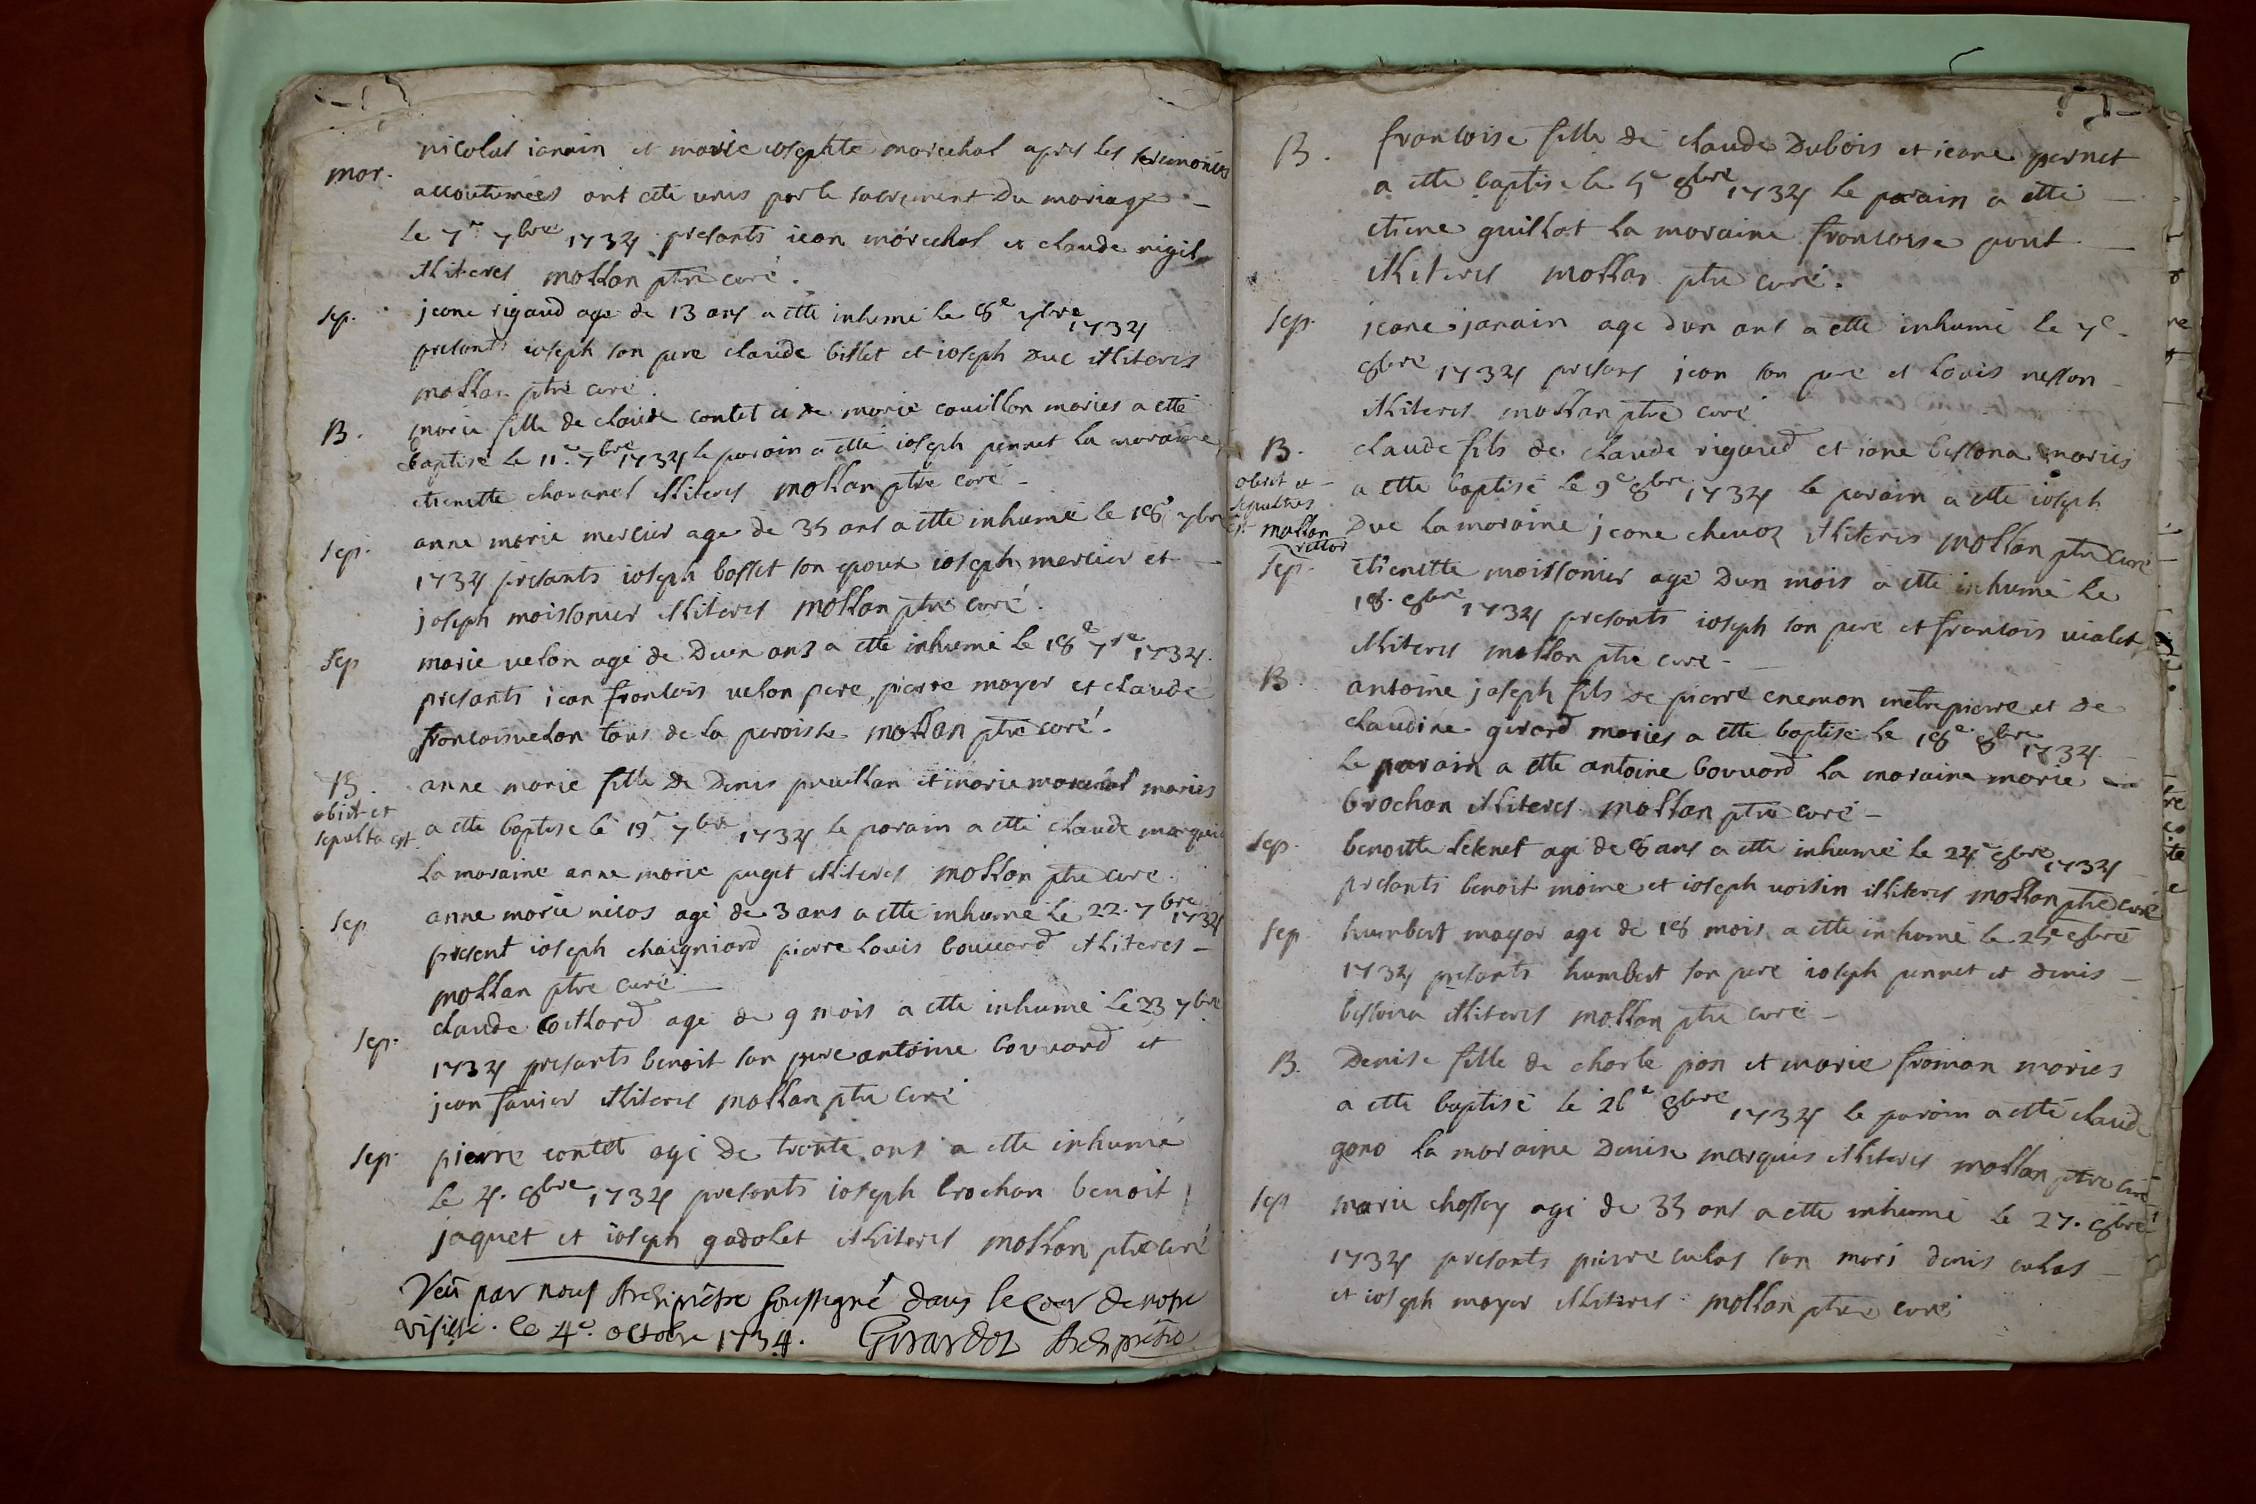 mar.
nicolas ianin et marie iosephte marechal apres les seremonies
accoutumées ont etté unis par le sacrement du mariage –
le 7e 7bre 1734 presants iean marechal et claude nigil
illiteres mollan ptre curé.
sep.
jeane rigaud age de 13 ans a etté inhumé le 8e 7bre 1734
presants ioseph son pere claude billet et ioseph duc illiteres
mollan ptre curé.
B.
marie fille de claude contet et de marie couillon maries a etté
baptisé le 11e 7bre 1734 le parain a etté ioseph pennet la maraine
etienette chavanel illiteres mollan ptre curé –
sep.
anne marie mercier age de 35 ans a etté inhumé le 18e 7bre
1734 presants ioseph bosset son epoux ioseph mercier et –
joseph moissonier illiteres mollan ptre curé.
sep
marie velon agé de deux ans a etté inhumé le 18e 7re 1734.
presants iean francois velon pere, pierre mayer et claude
francois velon tous de la paroisse mollan ptre curé.
B.
obiit et
sepulta est
anne marie fille de denis et marie maries
a etté baptisé le 19e 7bre 1734 le parain a etté claude marquis
la maraine anne marie puget illiteres mollan ptre curé.
sep
anne marie nicos agé de 3 ans a etté inhumé le 22. 7bre 1734
present ioseph chaigniard pierre louis bouvard illiteres –
mollan ptre curé –
sep.
claude coillard agé de 9 mois a etté inhumé le 23 7bre
1734 presants benoit son pere antoine bouvard et
jean favier illiteres mollan ptre curé
sep.
pierre contet agé de trente ans a etté inhumé
le 4. 8bre 1734 presants ioseph brochan benoit
jaquet et ioseph gadolet illiteres mollan ptre curé
Veu par nous Archiprêtre soussigné dans le cour de notre
visitte. le 4e. octobre 1734. Girardoz Archiprêtre
B.
francoise fille de claude Dubois et ieane pernet
a etté baptisé le 5e 8bre 1734 le parain a etté –
etiene guillot la maraine francoise pont –
illiteres mollan ptre curé.
sep.
jeane janain age d'un ans a etté inhumé le 7e –
8bre 1734 presans jean son pere et louis nesson –
illiteres mollan ptre curé
B.
obiit et
sepultus
est mollan
rector
claude fils de claude rigaud et iane bessona maries
a etté baptisé le 9e 8bre 1734 le parain a etté ioseph
Duc la maraine jeane chenoz illiteres mollan ptre curé
sep.
etienette moissonier agé d'un mois a etté inhumé le
18. 8bre 1734 presants ioseph son pere et francois vialet
illiteres mollan ptre curé –
B.
antoine joseph fils de pierre enemon metrepierre et de
claudine girard maries a etté baptisé le 18e 8bre 1734
le parain a etté antoine bouvard la maraine marie
brochan illiteres mollan ptre curé –
sep.
benoitte agé de 8 ans a etté inhumé le 24e 8bre 1734
presants benoit moine et ioseph voisin illiteres mollan ptre curé
sep
humbert mayor agé de 18 mois a etté inhumé le 25e 8bre
1734 presants humbert son pere ioseph pennet et denis –
bessona illiteres mollan ptre curé –
B.
Denise fille de charle pon et marie froman maries
a etté baptisé le 26e 8bre 1734 le parain a etté claude
gono la maraine Denise marquis illiteres mollan ptre curé
sep
marie chossey agé de 35 ans a etté inhumé le 27. 8bre
1734 presants pierre culas son mari denis culas –
et ioseph mayer illiteres mollan ptre curé